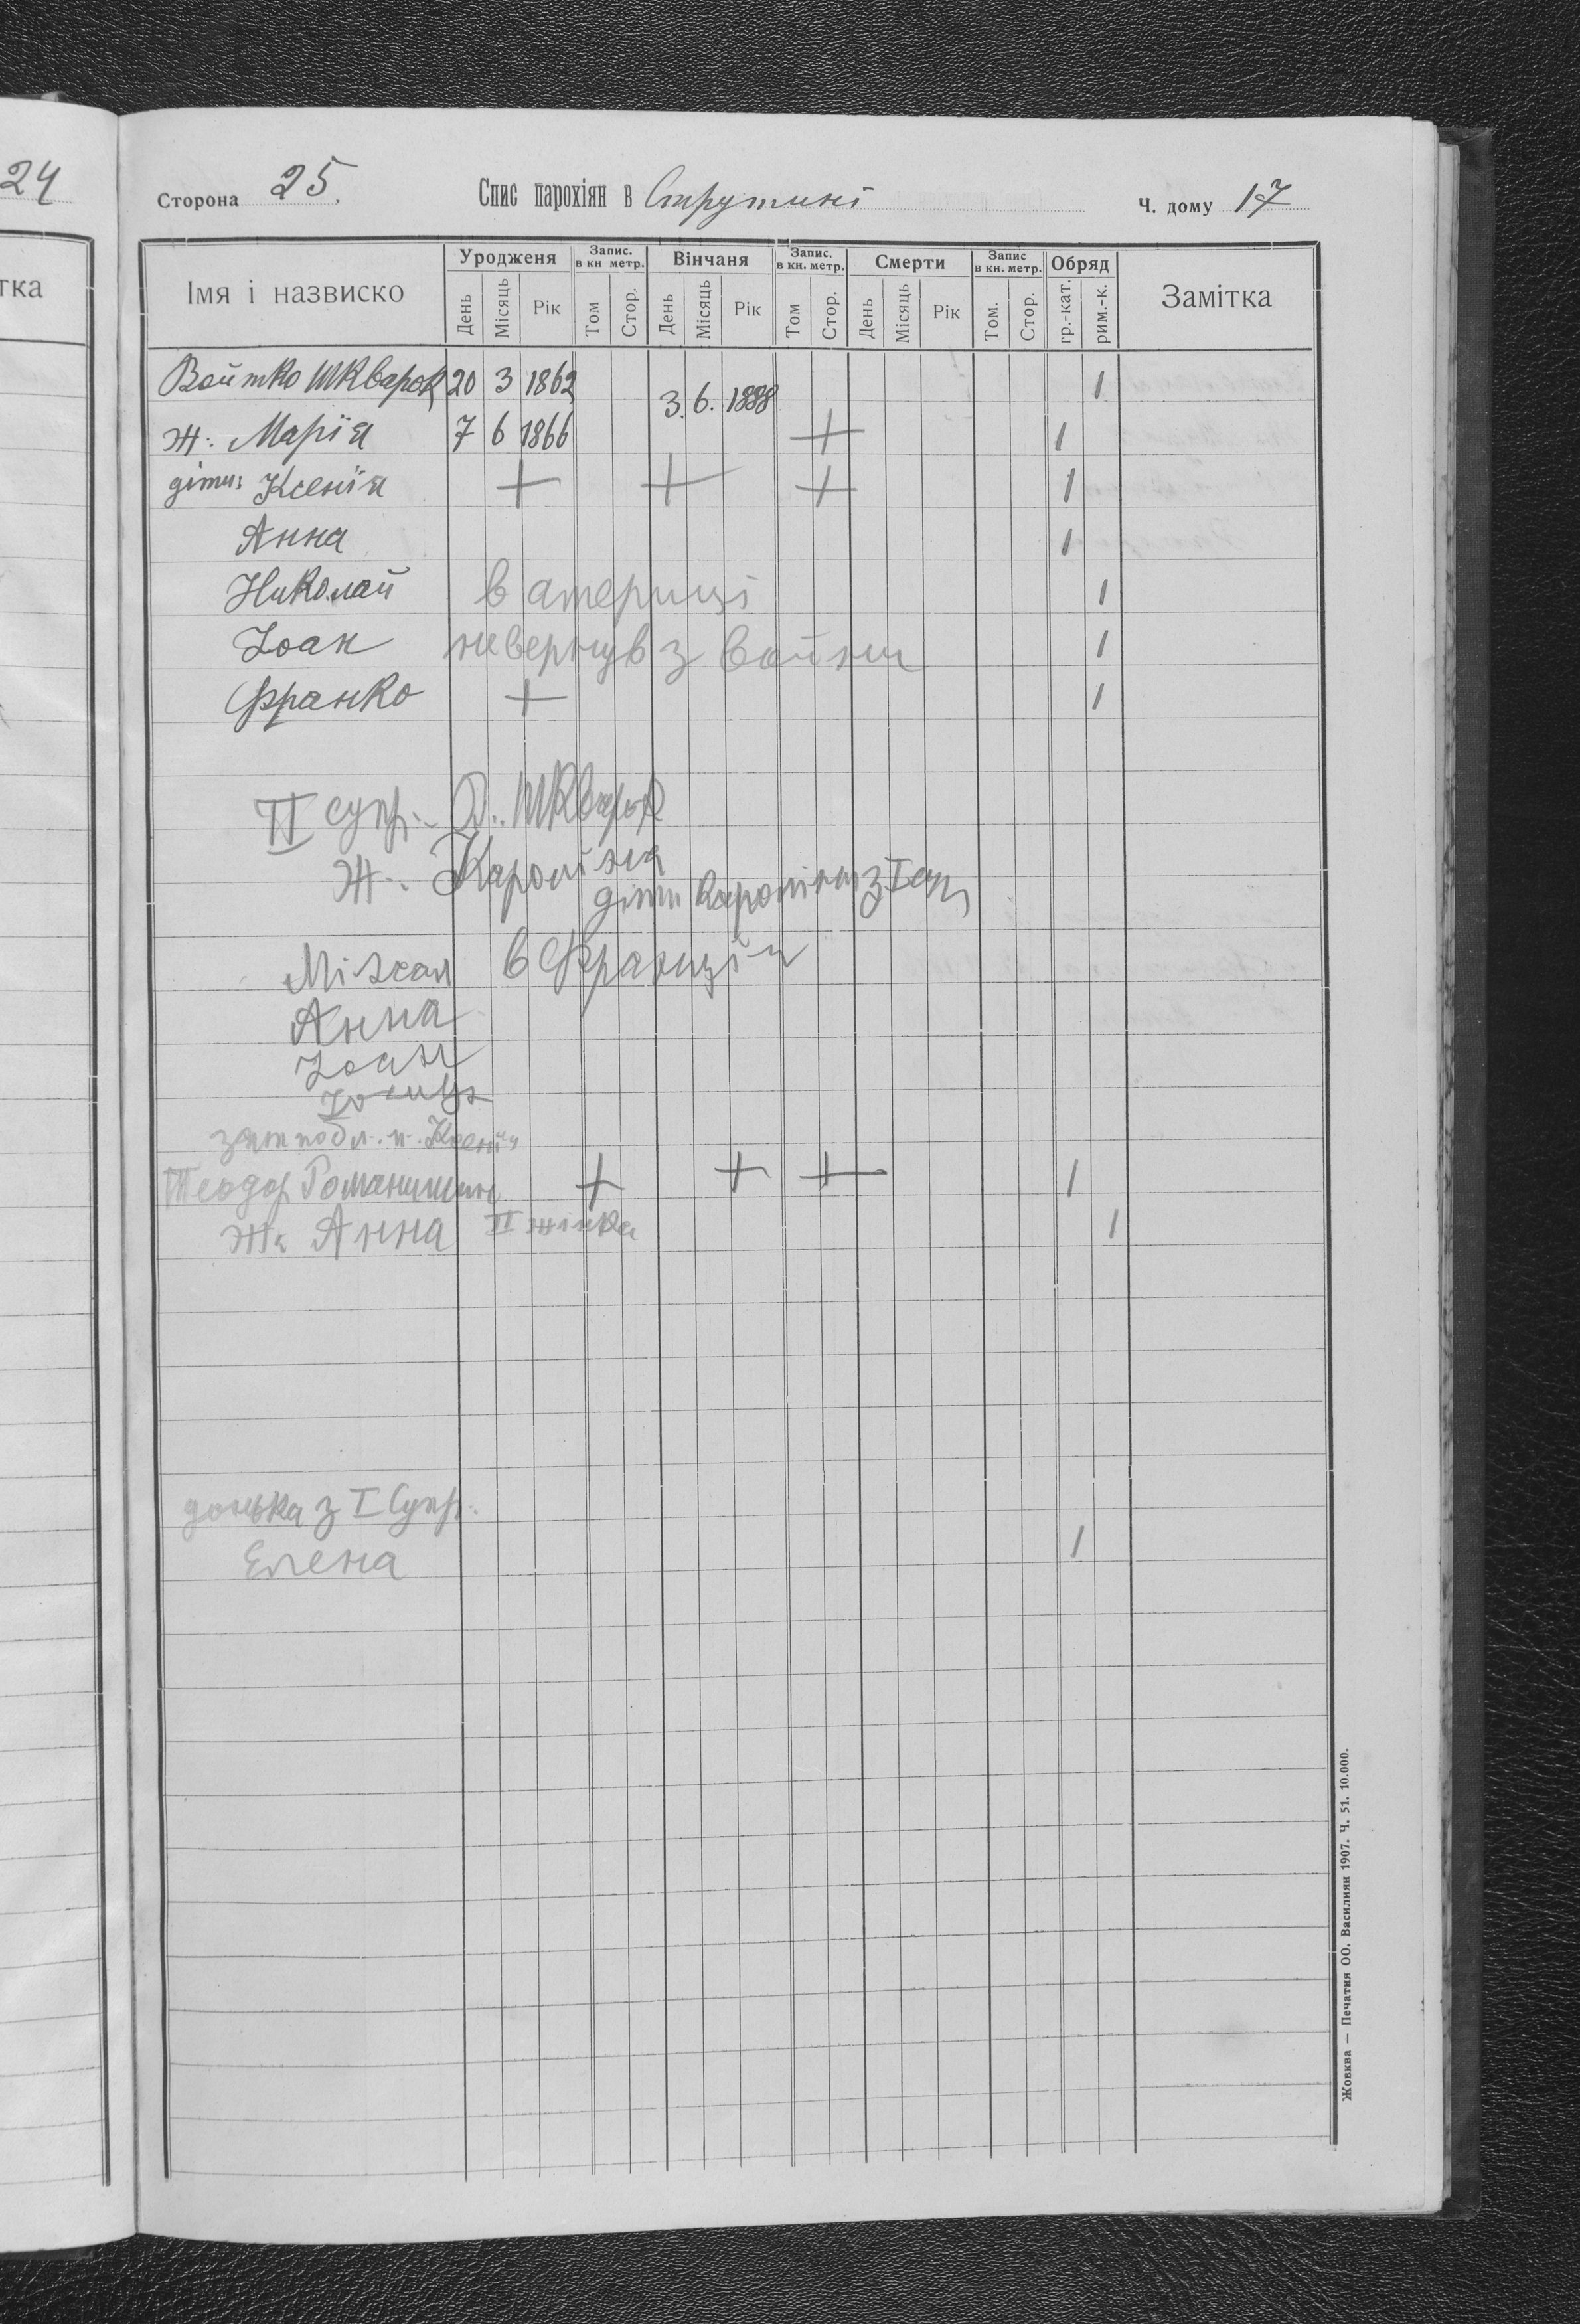 24
тка
Сторона 25.
Спис парохіян в Струтині
Ч. дому 17
Імя і назвиско
Уродженя
Запис. в кн метр.
Вінчаня
Запис. в кн. метр.
Смерти
Запис в кн. метр.
Обряд
Замітка
День Місяць Рік Том Стор. День Місяць Рік Том Стор. День Місяць Рік Том. Стор. гр.-кат. рим.-к.
Войтко Шкварок 20 3 1862 1
3. 6. 1888
ж: Марія 7 6 1866 + 1
діти: Ксенія + + + 1
Анна 1
Николай в америці 1
Іоан не вернув з войни 1
Франко + 1
II супр.. Шкварок
ж.. Кароліна
діти Кароліни з I суп
Міхал в Франциї
Анна
Іоан
Ксенія
Теодор Романишин + + + 1
ж: Анна II жінка 1
донька з I Супр.
Елена 1
Жовква — Печатня ОО. Василиян 1907. Ч. 51. 10.000.